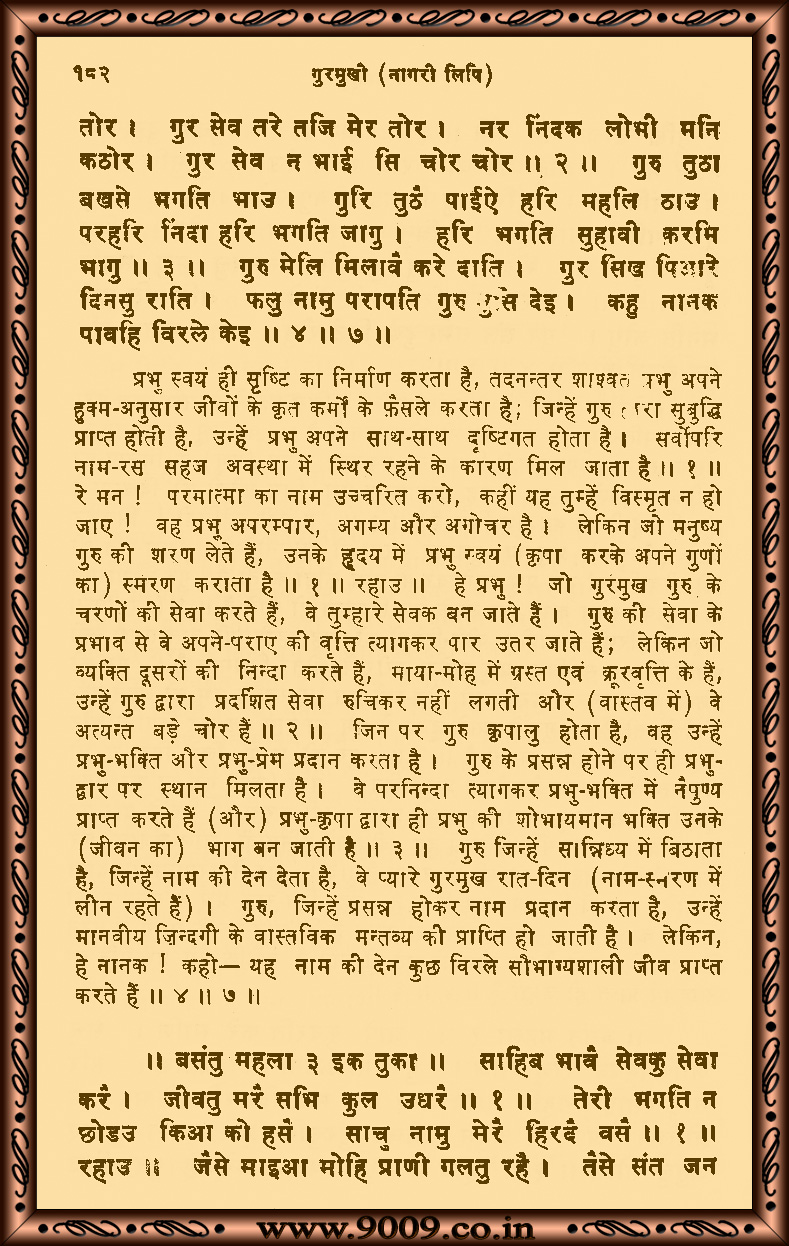 १८२ गुरमुखी (नागरी लिपि)
तोर । गुर सेव तरे तजि मेर तोर । नर निंदक लोभी मनि
कठोर । गुर सेव न भाई सि चोर चोर ॥ २ ॥ गुरु तुठा
बखसे भगति भाउ । गुरि तुठै पाईऐ हरि महलि ठाउ ।
परहरि निंदा हरि भगति जागु । हरि भगति सुहावी करमि
भागु ॥ ३ ॥ गुरु मेलि मिलावै करे दाति । गुर सिख पिआरे
दिनसु राति । फलु नामु परापति गुरु देइ । कहु नानक
पावहि विरले केइ ॥ ४ ॥ ७ ॥
प्रभु स्वयं ही सृष्टि का निर्माण करता है, तदनन्तर शाश्वत प्रभु अपने
हुक्म-अनुसार जीवों के कृत कर्मों के फ़ैसले करता है; जिन्हें गुरु द्वारा सुबुद्धि
प्राप्त होती है, उन्हें प्रभु अपने साथ-साथ दृष्टिगत होता है । सर्वोपरि
नाम-रस सहज अवस्था में स्थिर रहने के कारण मिल जाता है ॥ १ ॥
रे मन ! परमात्मा का नाम उच्चरित करो, कहीं यह तुम्हें विस्मृत न हो
जाए ! वह प्रभु अपरम्पार, अगम्य और अगोचर है । लेकिन जो मनुष्य
गुरु की शरण लेते हैं, उनके हृदय में प्रभु स्वयं (कृपा करके अपने गुणों
का) स्मरण कराता है ॥ १ ॥ रहाउ ॥ हे प्रभु ! जो गुरमुख गुरु के
चरणों की सेवा करते हैं, वे तुम्हारे सेवक बन जाते हैं । गुरु की सेवा के
प्रभाव से वे अपने-पराए की वृत्ति त्यागकर पार उतर जाते हैं; लेकिन जो
व्यक्ति दूसरों की निन्दा करते हैं, माया-मोह में ग्रस्त एवं क्रूरवृत्ति के हैं,
उन्हें गुरु द्वारा प्रदर्शित सेवा रुचिकर नहीं लगती और (वास्तव में) वे
अत्यन्त बड़े चोर हैं ॥ २ ॥ जिन पर गुरु कृपालु होता है, वह उन्हें
प्रभु-भक्ति और प्रभु-प्रेम प्रदान करता है । गुरु के प्रसन्न होने पर ही प्रभु-
द्वार पर स्थान मिलता है । वे परनिन्दा त्यागकर प्रभु-भक्ति में नैपुण्य
प्राप्त करते हैं (और) प्रभु-कृपा द्वारा ही प्रभु की शोभायमान भक्ति उनके
(जीवन का) भाग बन जाती है ॥ ३ ॥ गुरु जिन्हें सान्निध्य में बिठाता
है, जिन्हें नाम की देन देता है, वे प्यारे गुरमुख रात-दिन (नाम-स्मरण में
लीन रहते हैं) । गुरु, जिन्हें प्रसन्न होकर नाम प्रदान करता है, उन्हें
मानवीय ज़िन्दगी के वास्तविक मन्तव्य की प्राप्ति हो जाती है । लेकिन,
हे नानक ! कहो— यह नाम की देन कुछ विरले सौभाग्यशाली जीव प्राप्त
करते हैं ॥ ४ ॥ ७ ॥
॥ बसंतु महला ३ इक तुका ॥ साहिब भावै सेवकु सेवा
करै । जीवतु मरै सभि कुल उधरै ॥ १ ॥ तेरी भगति न
छोडउ किआ को हसै । साचु नामु मेरै हिरदै वसै ॥ १ ॥
रहाउ ॥ जैसे माइआ मोहि प्राणी गलतु रहै । तैसे संत जन
www.9009.co.in